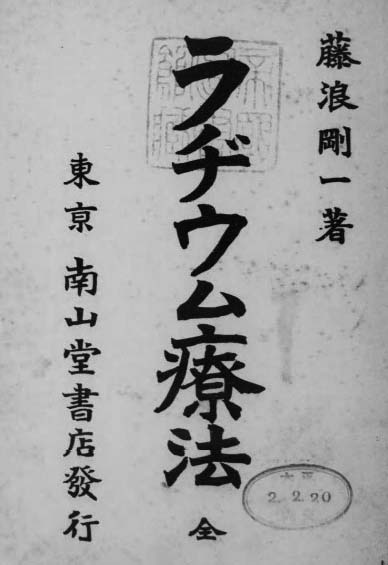 藤浪剛一著
ラヂウム療法 全
東京 南山堂書店發行
2.2.20